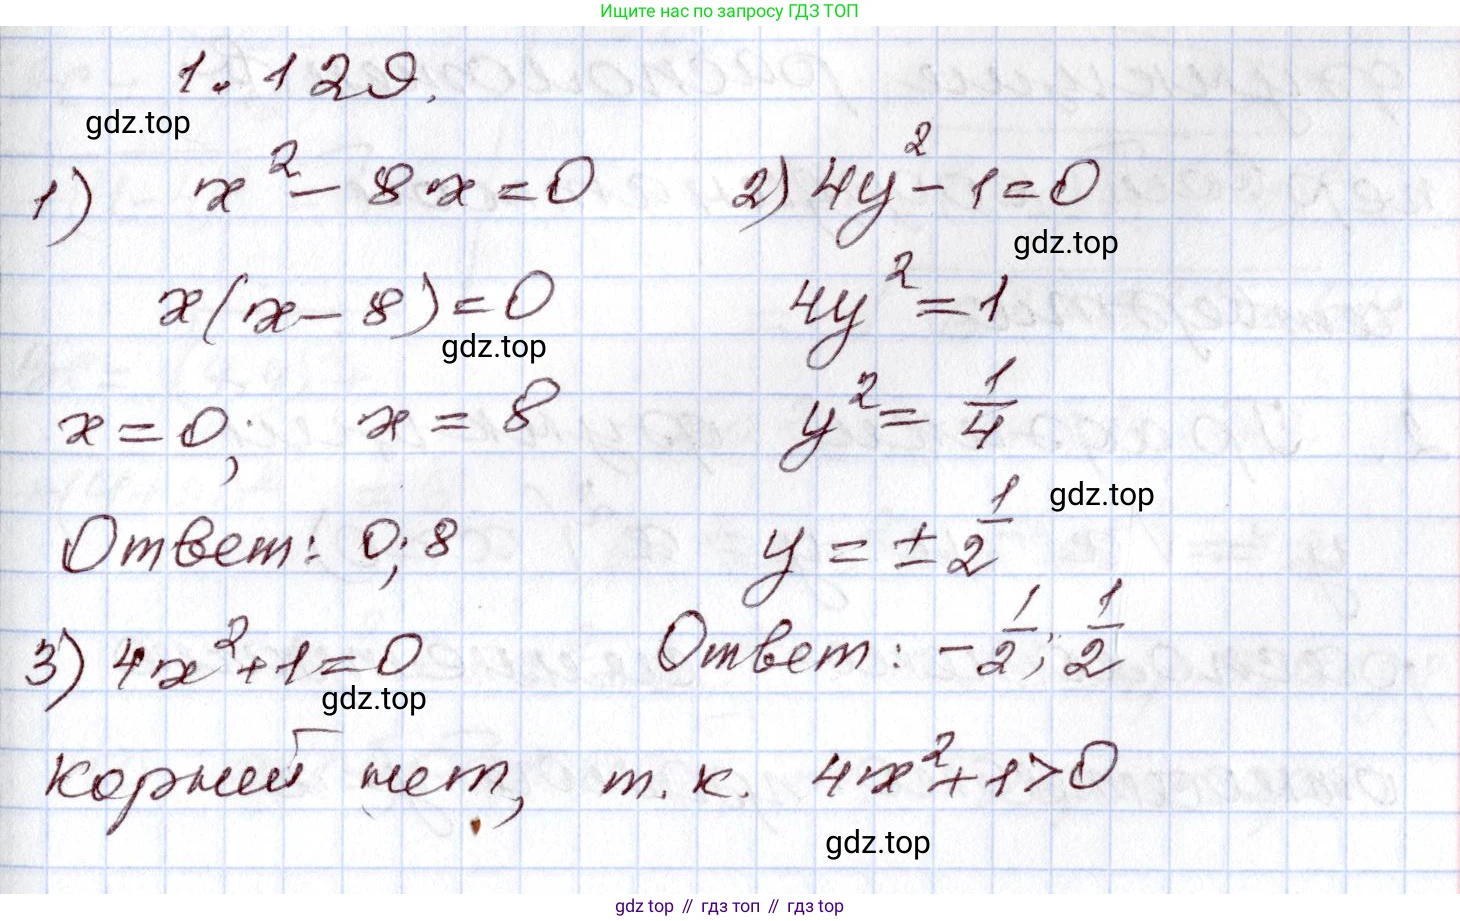 Ищите нас по запросу ГДЗ ТОП
1.129.
gdz.top
1) x² - 8x = 0
x(x - 8) = 0
gdz.top
x = 0; x = 8
Ответ: 0; 8
2) 4y² - 1 = 0
gdz.top
4y² = 1
y² = 1/4
gdz.top
y = ± 1/2
Ответ: - 1/2; 1/2
3) 4x² + 1 = 0
gdz.top
корней нет, т.к. 4x² + 1 > 0
gdz.top
gdz top // гдз топ // гдз top